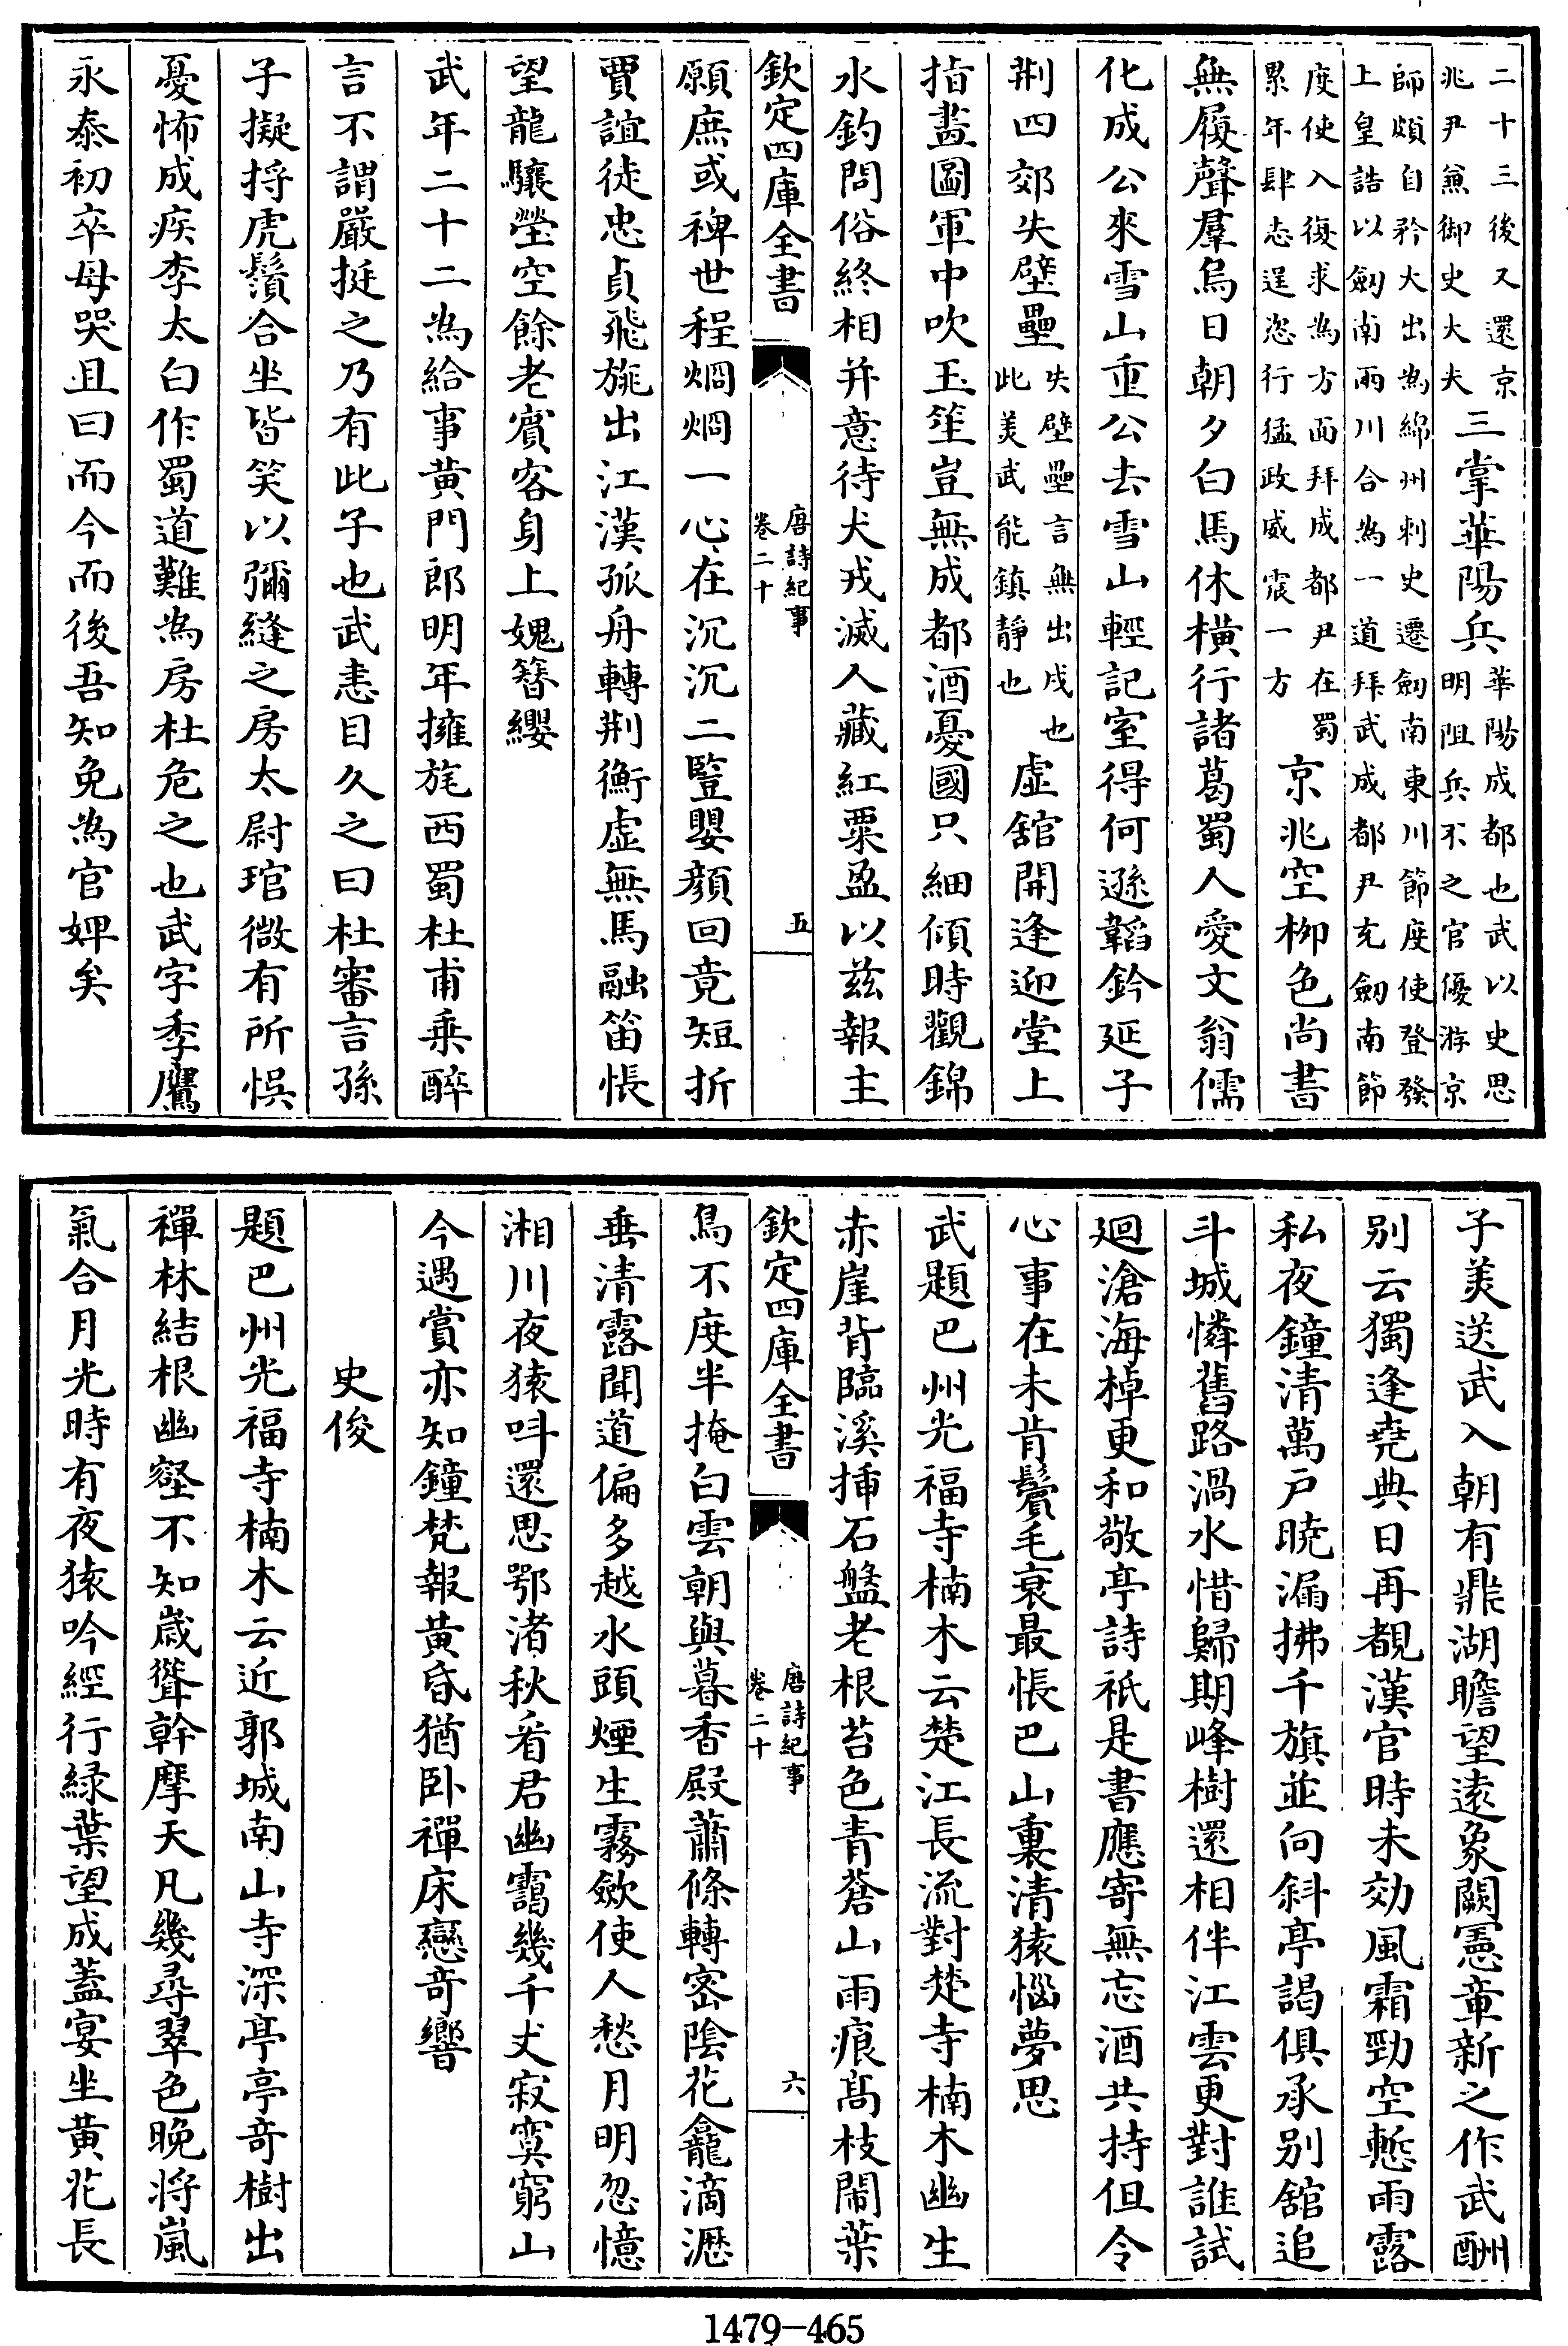 二十三後又還京
兆尹兼御史大夫三掌華陽兵華陽成都也武以史思
明阻兵不之官優游京
師頗自矜大出為綿州刺史遷劔南東川節度使登發
上皇誥以劔南兩川合為一道拜武成都尹充劔南節
度使入復求為方面拜成都尹在蜀
累年肆志逞恣行猛政威震一方京兆空栁色尚書
無履聲羣烏日朝夕白馬休横行諸葛蜀人愛文翁儒
化成公來雪山重公去雪山輕記室得何遜韜鈐延子
荆四郊失壁壘失壁壘言無出戍也
此美武能鎮靜也虚舘開逢迎堂上
指畫圖軍中吹玉笙豈無成都酒憂國只細傾時觀錦
水釣問俗終相并意待犬戎滅人藏紅粟盈以兹報主
欽定四庫全書
唐詩紀事
卷二十
五
願庶或稗世程烱烱一心在沉沉二豎嬰顔回竟短折
賈誼徒忠貞飛旐出江漢孤舟轉荆衡虚無馬融笛悵
望龍驤塋空餘老賓客身上媿簪纓
武年二十二為給事黄門郎明年擁旄西蜀杜甫乗醉
言不謂嚴挺之乃有此子也武恚目久之曰杜審言孫
子擬捋虎鬚合坐皆笑以彌縫之房太尉琯微有所悞
憂怖成疾李太白作蜀道難為房杜危之也武字季鷹
永泰初卒母哭且曰而今而後吾知免為官婢矣
子美送武入朝有鼎湖瞻望遠象闕憲章新之作武酬
别云獨逢堯典日再覩漢官時未効風霜勁空慙雨露
私夜鐘清萬戸曉漏拂千旗並向斜亭謁俱承别舘追
斗城憐舊路渦水惜歸期峰樹還相伴江雲更對誰試
廻滄海棹更和敬亭詩祇是書應寄無忘酒共持但令
心事在未肯鬢毛衰最悵巴山裏清猿惱夢思
武題巴州光福寺楠木云楚江長流對楚寺楠木幽生
赤崖背臨溪揷石盤老根苔色青蒼山雨痕髙枝閙葉
欽定四庫全書
唐詩紀事
卷二十
六
鳥不度半掩白雲朝與暮香殿蕭條轉宻陰花龕滴瀝
垂清露聞道偏多越水頭煙生霧歛使人愁月明忽憶
湘川夜猿呌還思鄂渚秋㸔君幽靄幾千丈寂寞窮山
今遇賞亦知鐘梵報黄昏猶卧禪床戀竒響
史俊
題巴州光福寺楠木云近郭城南山寺深亭亭竒樹出
禪林結根幽壑不知歳聳幹摩天凡幾尋翠色晚将嵐
氣合月光時有夜猿吟經行緑葉望成蓋宴坐黄花長
1479-465